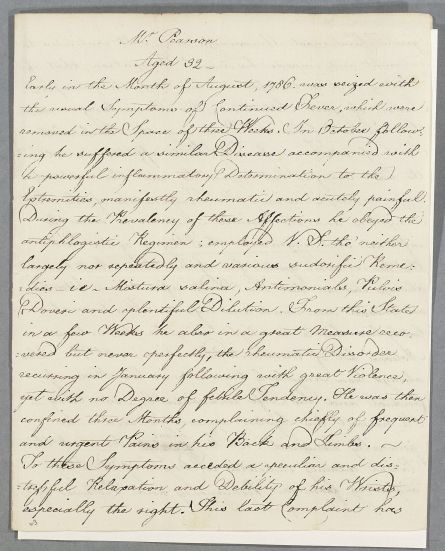 Mr. Pearson
Aged 32 -
Early in the Month of August, 1786 was seized with
the usual Symptoms of Continued Fever, which were
removed in the Space of three Weeks. In October follow-
:ing he suffered a similar Disease accompanied with
a powerful inflammatory Determination to the
Extremities, manifestly rheumatic and acutely painful.
During the Prevalency of these Affections he obeyed the
antiphlogistic Regimen; employed V. S. tho' neither
largely nor repeatedly and various sudorific Reme:
:dies - ie - Mistura salina, Antimonials, Pulvis
Doveri and plentiful Dilution. From this State
in a few Weeks he also in a great Measure reco-
:vered but never perfectly, the rheumatic Disorder
recurring in January following with great Violence,
yet with no Degree of febrile Tendency. He was then
confined three Months, complaining chiefly of frequent
and urgent Pains in his Back and Limbs. ~
To these Symptoms acceded a peculiar and dis:
:tressful Relaxation and Debility of his Wrists,
especially the right. This last Complaint has